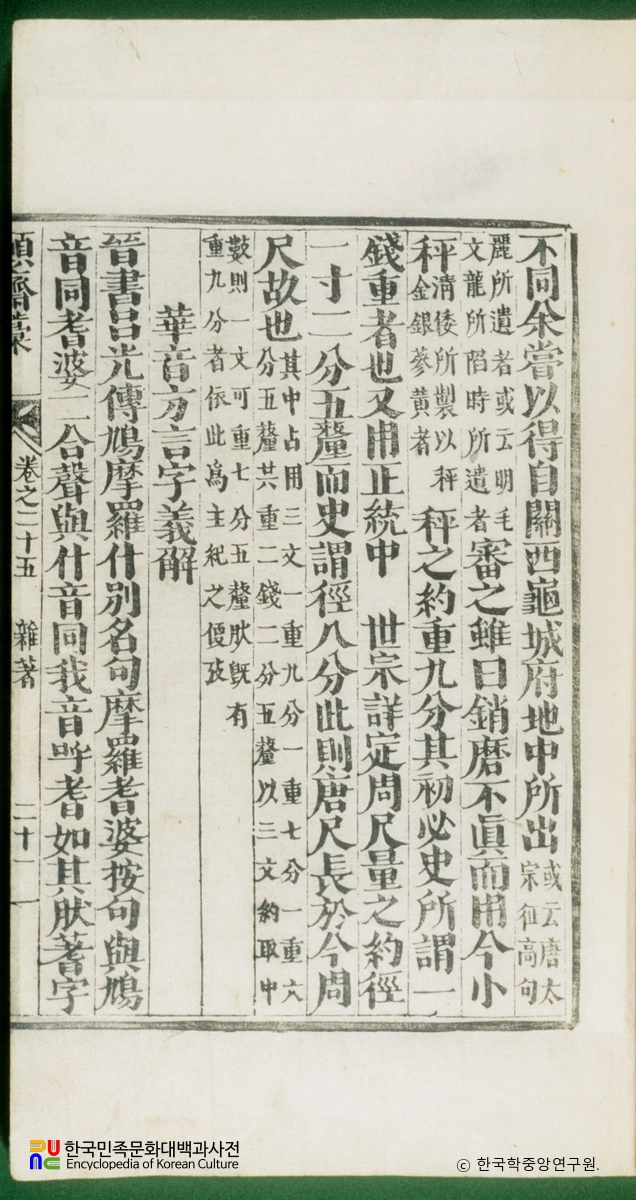 不同余嘗以得自關西龜城府地中所出或云唐太宗征高句
麗所遺者或云明毛文龍所陷時所遺者審之雖曰銷磨不眞而用今小
秤淸倭所製以秤金銀蔘黃者秤之約重九分其初必史所謂一
錢重者也又用正統中 世宗詳定周尺量之約徑
一寸二分五釐而史謂徑八分此則唐尺長於今周
尺故也其中占用三文一重九分一重七分一重六分五釐共重二錢二分五釐以三文約取中
數則一文可重七分五釐肰旣有重九分者依此爲主紀之便攷
華音方言字義解
晉書呂光傳鳩摩羅什別名句摩羅耆婆按句與鳩
音同耆婆二合聲與什音同我音呼耆如其肰蓍字
頤齋藁 卷之二十五 雜著 二十一
한국민족문화대백과사전
Encyclopedia of Korean Culture
© 한국학중앙연구원.